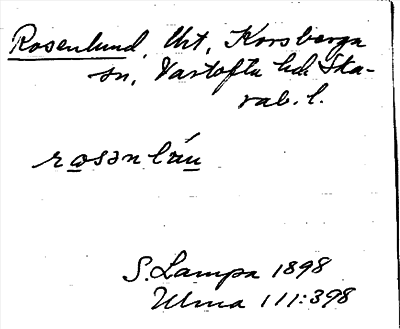 Rosenlund, lht, Korsberga
sn, Vartofta hd, Ska-
rab. l.
rosənlún
S. Lampa 1898
Ulma 111:398